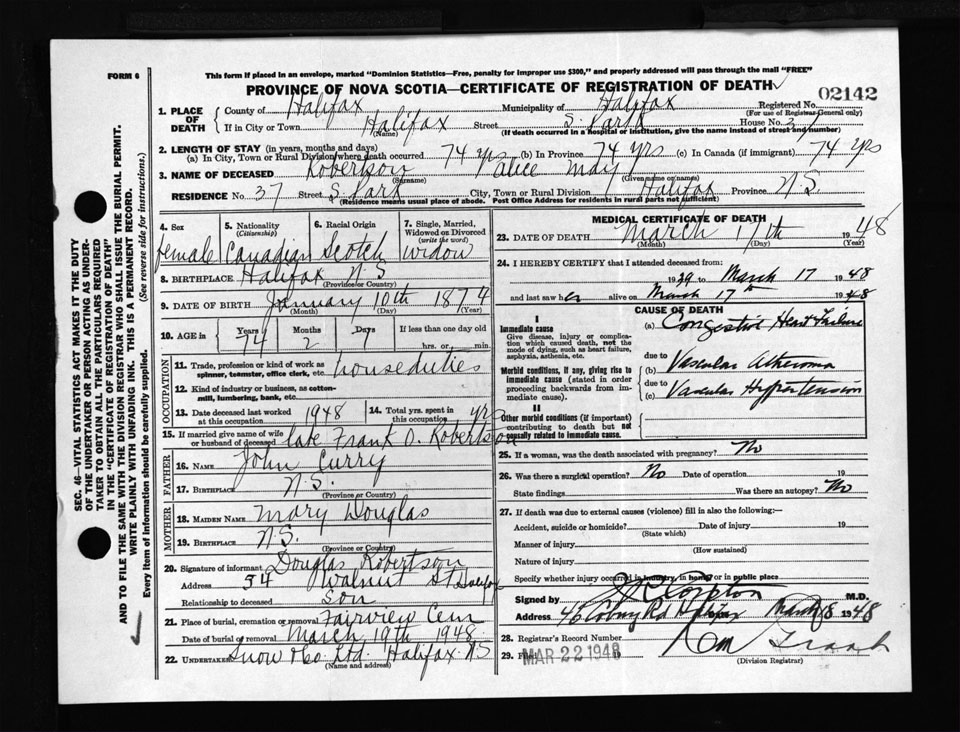 FORM 6
This form if placed in an envelope, marked "Dominion Statistics—Free, penalty for improper use $300," and properly addressed will pass through the mail "FREE"
PROVINCE OF NOVA SCOTIA—CERTIFICATE OF REGISTRATION OF DEATH
02142
1. PLACE OF DEATH
County of Halifax Municipality of Halifax Registered No.
(For use of Registrar-General only)
If in City or Town Halifax Street S. Park House No. 37
(Name) (If death occurred in a hospital or institution, give the name instead of street and number)
2. LENGTH OF STAY (in years, months and days)
(a) In City, Town or Rural Division where death occurred 74 yrs (b) In Province 74 yrs (c) In Canada (if immigrant) 74 yrs
3. NAME OF DECEASED Robertson Alice May
(Surname) (Given name or names)
RESIDENCE No. 37 Street S. Park City, Town or Rural Division Halifax Province N S
(Residence means usual place of abode. Post Office Address for residents in rural parts not sufficient)
4. Sex
female
5. Nationality
(Citizenship)
Canadian
6. Racial Origin
Scotch
7. Single, Married, Widowed or Divorced
(write the word)
Widow
8. BIRTHPLACE Halifax N S
(Province or Country)
9. DATE OF BIRTH January 10th 1874
(Month) (Day) (Year)
10. AGE in Years Months Days If less than one day old
74 2 7 hrs. or min.
OCCUPATION
11. Trade, profession or kind of work as spinner, teamster, office clerk, etc. houseduties
12. Kind of industry or business, as cotton-mill, lumbering, bank, etc.
13. Date deceased last worked at this occupation 1948
14. Total yrs. spent in this occupation yrs
15. If married give name of wife or husband of deceased late Frank O. Robertson
FATHER
16. NAME John Curry
17. BIRTHPLACE N. S.
(Province or Country)
MOTHER
18. MAIDEN NAME Mary Douglas
19. BIRTHPLACE N S.
(Province or Country)
20. Signature of informant Douglas Robertson
Address 54 Walnut St Halifax
Relationship to deceased Son
21. Place of burial, cremation or removal Fairview Cem
Date of burial or removal March 19th 1948
22. UNDERTAKER Snow & Co. Ltd. Halifax N S
(Name and address)
MEDICAL CERTIFICATE OF DEATH
23. DATE OF DEATH March 17th 1948
(Month) (Day) (Year)
24. I HEREBY CERTIFY that I attended deceased from:
1939 to March 17 1948
and last saw her alive on March 17th 1948
CAUSE OF DEATH
I
Immediate cause
Give disease, injury or complication which caused death, not the mode of dying, such as heart failure, asphyxia, asthenia, etc.
(a) Congestive Heart Failure
due to
Morbid conditions, if any, giving rise to immediate cause (stated in order proceeding backwards from immediate cause).
(b) Vascular Atheroma
due to
(c) Vascular Hypertension
II
Other morbid conditions (if important) contributing to death but not causally related to immediate cause.
25. If a woman, was the death associated with pregnancy? No
26. Was there a surgical operation? No Date of operation 19
State findings Was there an autopsy? No
27. If death was due to external causes (violence) fill in also the following:
Accident, suicide or homicide? Date of injury 19
(State which)
Manner of injury
(How sustained)
Nature of injury
Specify whether injury occurred in industry, in home or in public place
Signed by M.D.
Address 45 Coburg Rd Halifax March 18 1948
28. Registrar's Record Number
29. Filed MAR 22 1948
(Division Registrar)
SEC. 46—VITAL STATISTICS ACT MAKES IT THE DUTY
OF THE UNDERTAKER OR PERSON ACTING AS UNDER-
TAKER TO OBTAIN ALL THE PARTICULARS REQUIRED
IN THE "CERTIFICATE OF REGISTRATION OF DEATH"
AND TO FILE THE SAME WITH THE DIVISION REGISTRAR WHO SHALL ISSUE THE BURIAL PERMIT.
WRITE PLAINLY WITH UNFADING INK. THIS IS A PERMANENT RECORD.
Every item of Information should be carefully supplied. (See reverse side for instructions.)